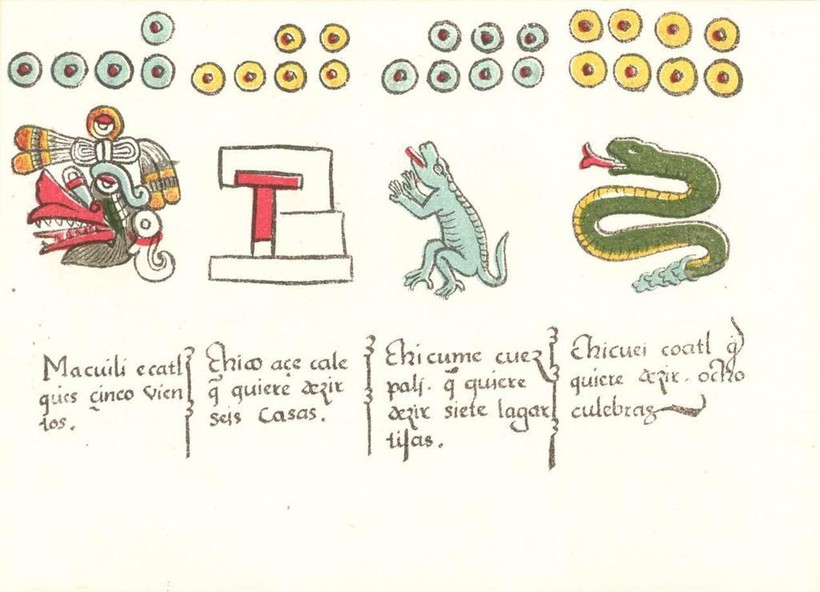 Macuili ecatl
qũes çinco vien
tos.
Chico açe cale
q̃ quiere dezir
seis casas.
Chicume cuez
palj. q̃ quiere
dezir siete lagar
tijas.
Chicuei coatl q̃
quiere dezir. ocho
culebras